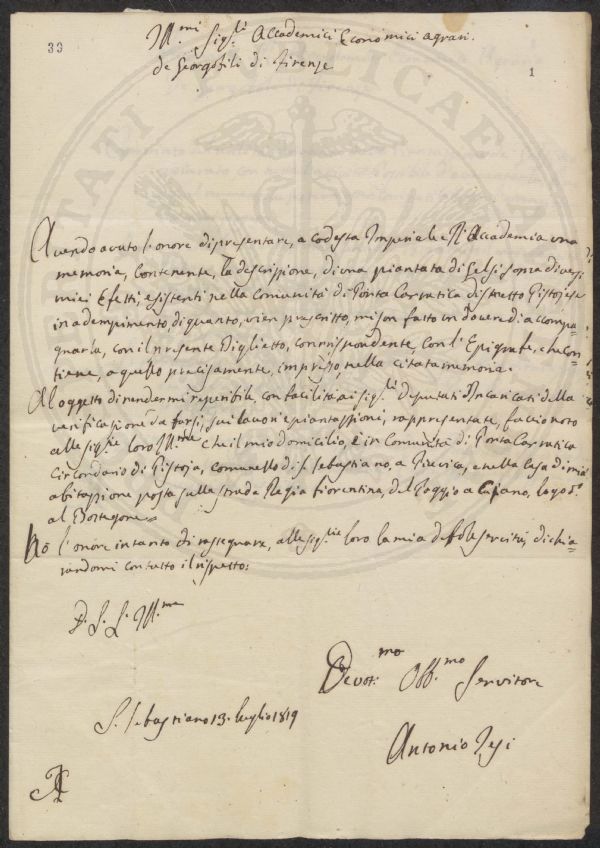 33
1
Ill.mi Sig.ri Accademici Economici agrari
de Georgofili di Firenze
Avendo avuto l'onore di presentare, a codesta Imperiale R. Accademia una
memoria, contenente, la descrissione, di una piantata di Gelsi sopra diversi
miei effetti, esistenti nella Comunità di Porta Carratica distretto Pistojese
in adempimento, di quanto, vien prescritto, mi son fatto un dovere di accompa=
gnarla, con il presente Biglietto, corrispondente, con l'Epigrafe, che con=
tiene, a quello precisamente, impresso, nella citata memoria.
Al oggetto di rendermi reperibile, con facilità ai sig.ri Deputati Incaricati della
verificazione da farsi, sui lavori e piantassioni, rappresentate, faccio noto
alle sig.rie loro Ill.me che il mio domicilio, è in Comunità di Porta Carratica
Circondario di Pistoja, Comunello di S. Sebastiano, a Piuvica, e nella Casa di mia
abitassione posta sulla strada Regia fiorentina, del Poggio a Cajano,
al Bottegone=
Ho l'onore intanto di rassegnare, alle sig.rie loro la mia servitù, dichia=
randomi con tutto il rispetto:
D. S. S. Ill.me
Devot.mo Obb.mo Servitore
S. Sebastiano 13. Luglio 1819
Antonio Tesi